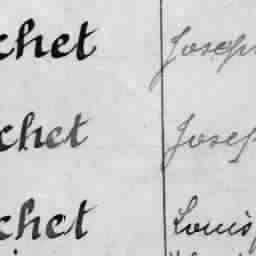 chet Joseph
chet Josep
chet Louis